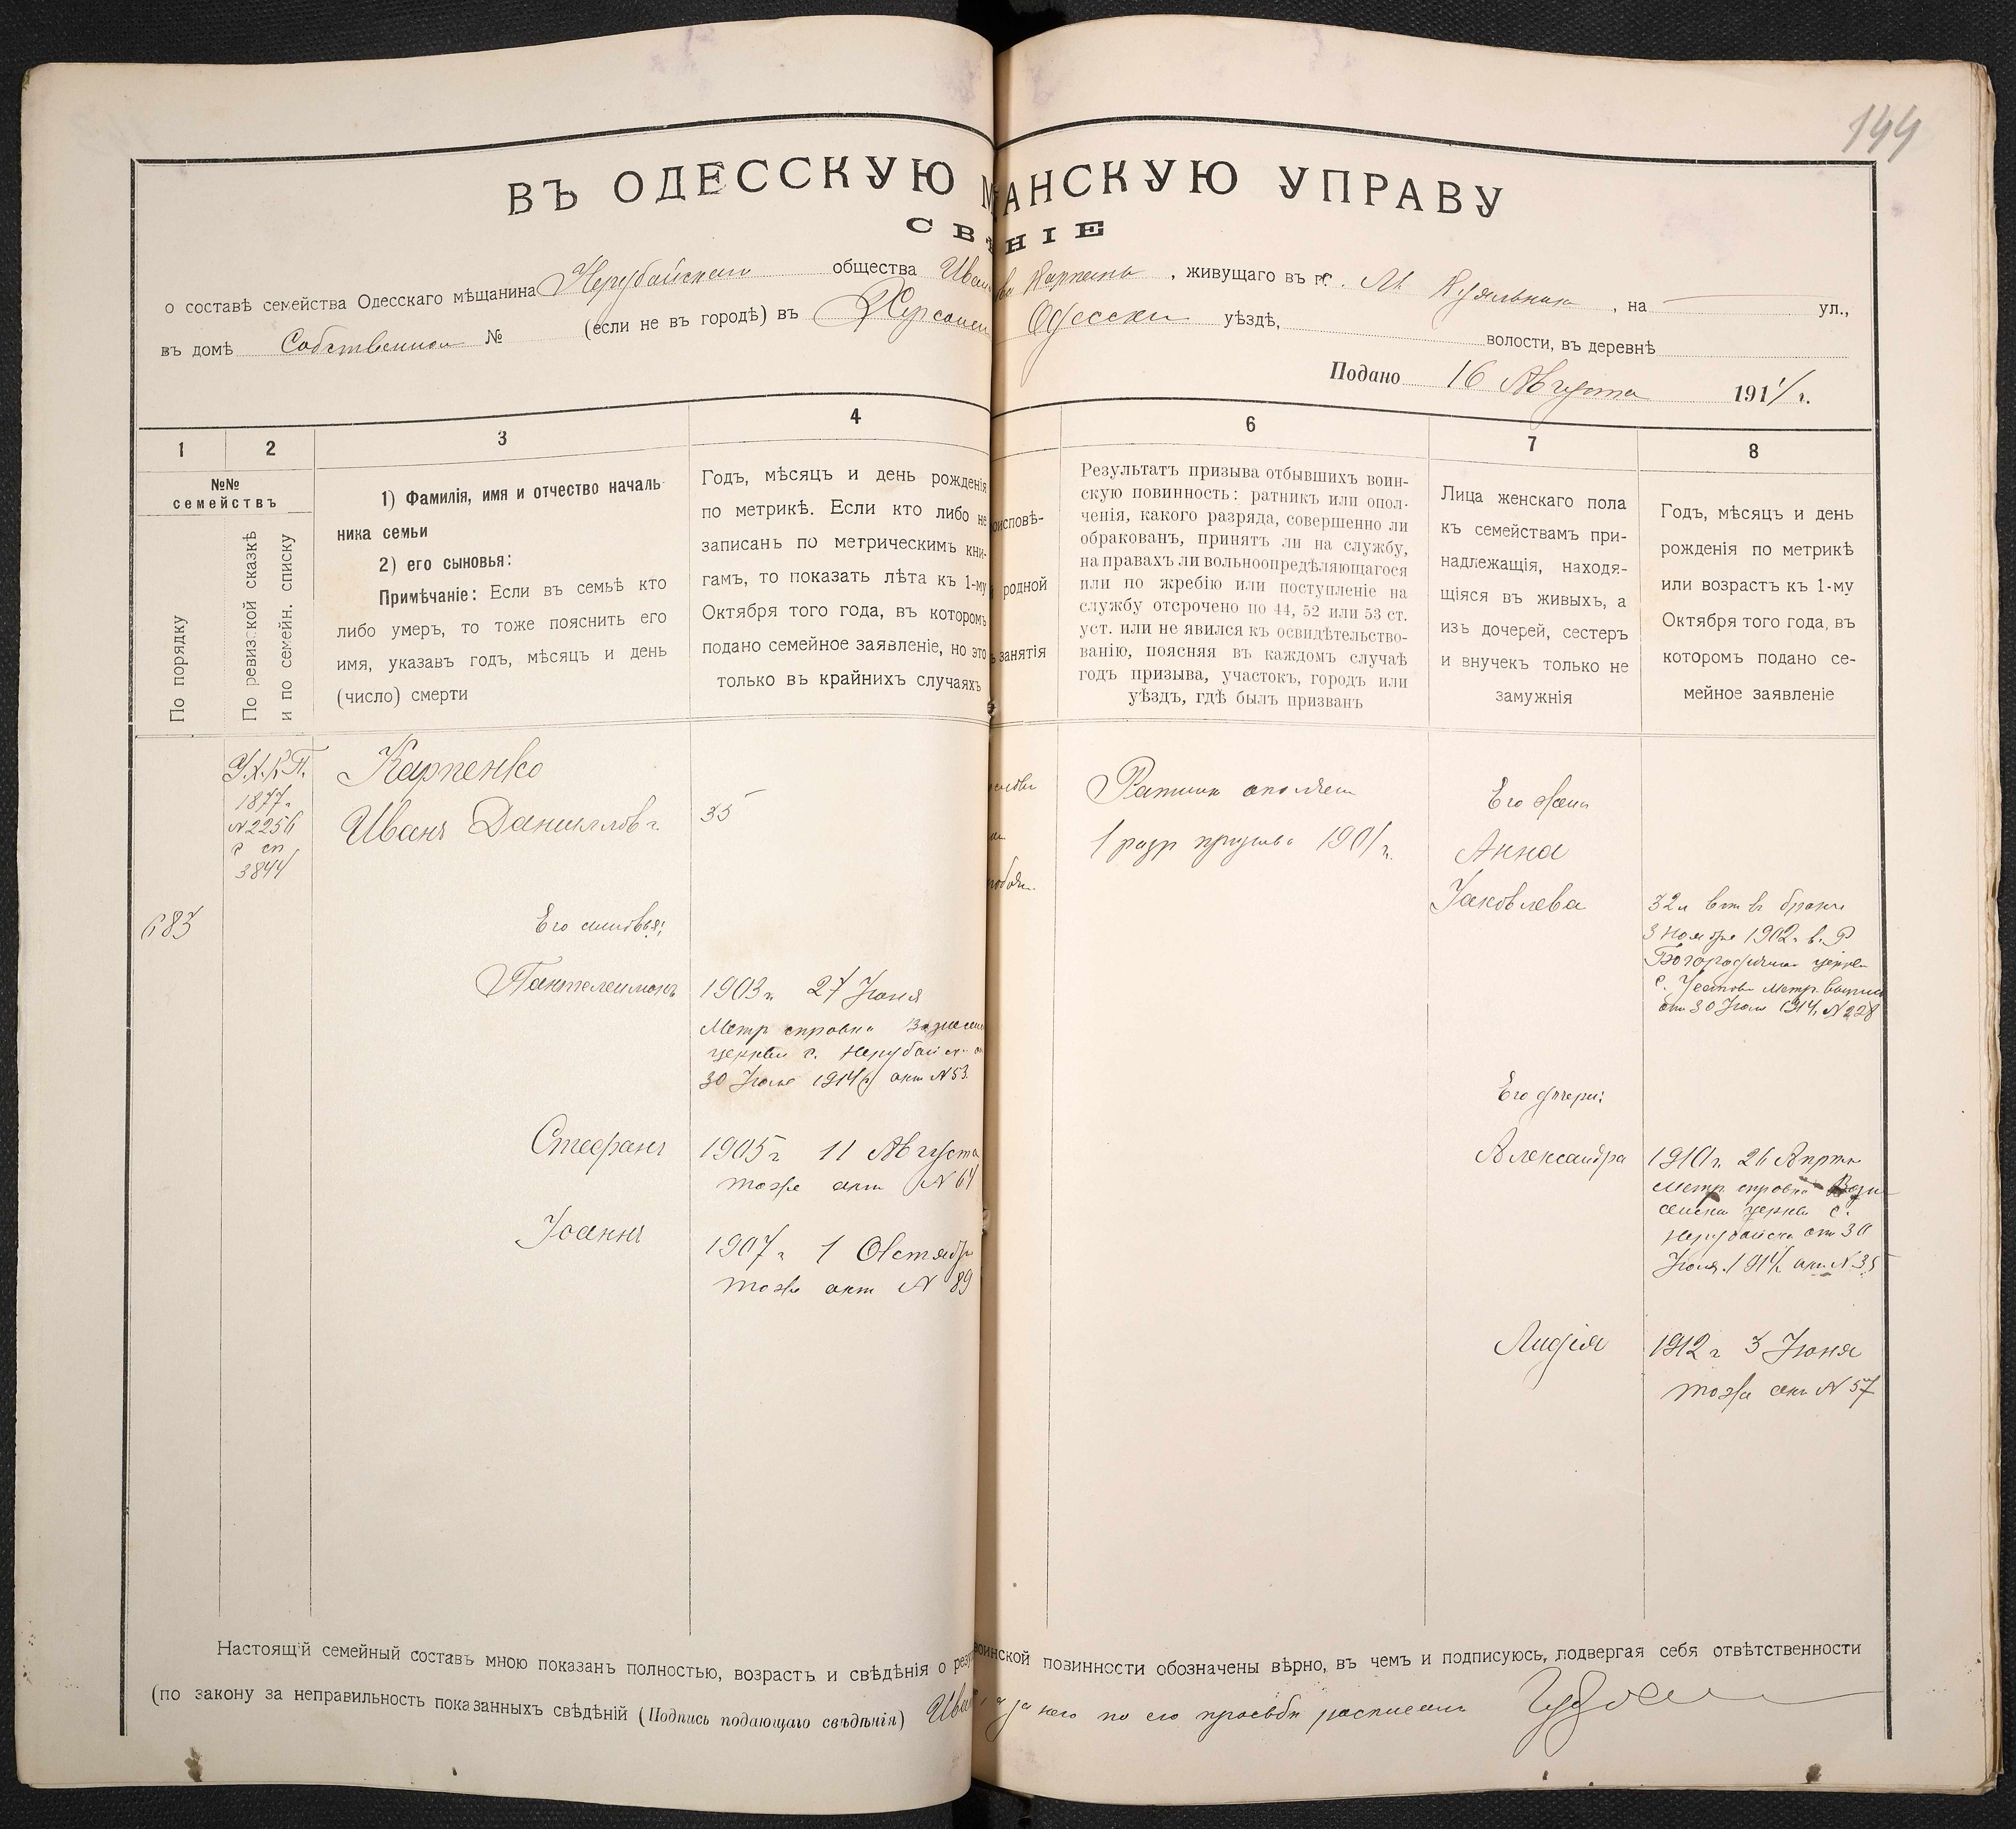 144
ВЪ ОДЕССКУЮ М АНСКУЮ УПРАВУ
СВ НІЕ
о составѣ семейства Одесскаго мѣщанина Нерубайскаго общества Иван , живущаго въ г. М Куяльник , на ул.,
въ домѣ Собственном № (если не въ городѣ) въ Херсонск Одесском уѣздѣ, волости, въ деревнѣ
Подано 16 Августа 1914 г.
1
2
3
4
6
7
8
№№
семействъ
По порядку
По ревизской сказкѣ
и по семейн. списку
1) Фамилія, имя и отчество началь-
ника семьи
2) его сыновья:
Примѣчаніе: Если въ семьѣ кто
либо умеръ, то тоже пояснить его
имя, указавъ годъ, мѣсяцъ и день
(число) смерти
Годъ, мѣсяцъ и день рожденія
по метрикѣ. Если кто либо не
записанъ по метрическимъ кни-
гамъ, то показать лѣта къ 1-му
Октября того года, въ которомъ
подано семейное заявленіе, но это
только въ крайнихъ случаяхъ
оисповѣ-
родной
занятія
Результатъ призыва отбывшихъ воин-
скую повинность: ратникъ или опол-
ченія, какого разряда, совершенно ли
обракованъ, принятъ ли на службу,
на правахъ ли вольноопредѣляющагося
или по жребію или поступленіе на
службу отсрочено по 44, 52 или 53 ст.
уст. или не явился къ освидѣтельство-
ванію, поясняя въ каждомъ случаѣ
годъ призыва, участокъ, городъ или
уѣздъ, гдѣ былъ призванъ
Лица женскаго пола
къ семействамъ при-
надлежащія, находя-
щіяся въ живыхъ, а
изъ дочерей, сестеръ
и внучекъ только не
замужнія
Годъ, мѣсяцъ и день
рожденія по метрикѣ
или возрастъ къ 1-му
Октября того года, въ
которомъ подано се-
мейное заявленіе
1877 г
№ 2256
с сп
3844
683
Карпенко
Иванъ Данилловъ
35
Его сыновья:
Пантелеимонъ
1903 г. 27 Іюня
Метр справка Вознесен
церкви с. Нерубайск
30 Іюля 1914 г акт № 53.
Стефанъ
1905 г 11 Августа
тоже акт № 64
Іоаннъ
1907 г 1 Октября
тоже акт № 89
Ратник ополчен
1 разр призыва 1901 г.
Его жена
Анна
Яковлева
32 л вст въ бракъ
3 Ноября 1902 г. в. Р
Богородичной церкви
с. Усатово Метр. выпись
от 30 Іюля 1914 № 228
Его дочери:
Александра
1910 г. 26 Апрѣля
Метр. справка Возне
сенска церкви с.
Нерубайска от 30
Іюля 1914 г акт № 35
Лидія
1912 г 3 Іюня
тоже акт № 57
Настоящій семейный составъ мною показанъ полностью, возрастъ и свѣдѣнія о резу воинской повинности обозначены вѣрно, въ чемъ и подписуюсь, подвергая себя отвѣтственности
(по закону за неправильность показанныхъ свѣдѣній (Подпись подающаго свѣдѣнія) Иван а за него по его просьбѣ расписался